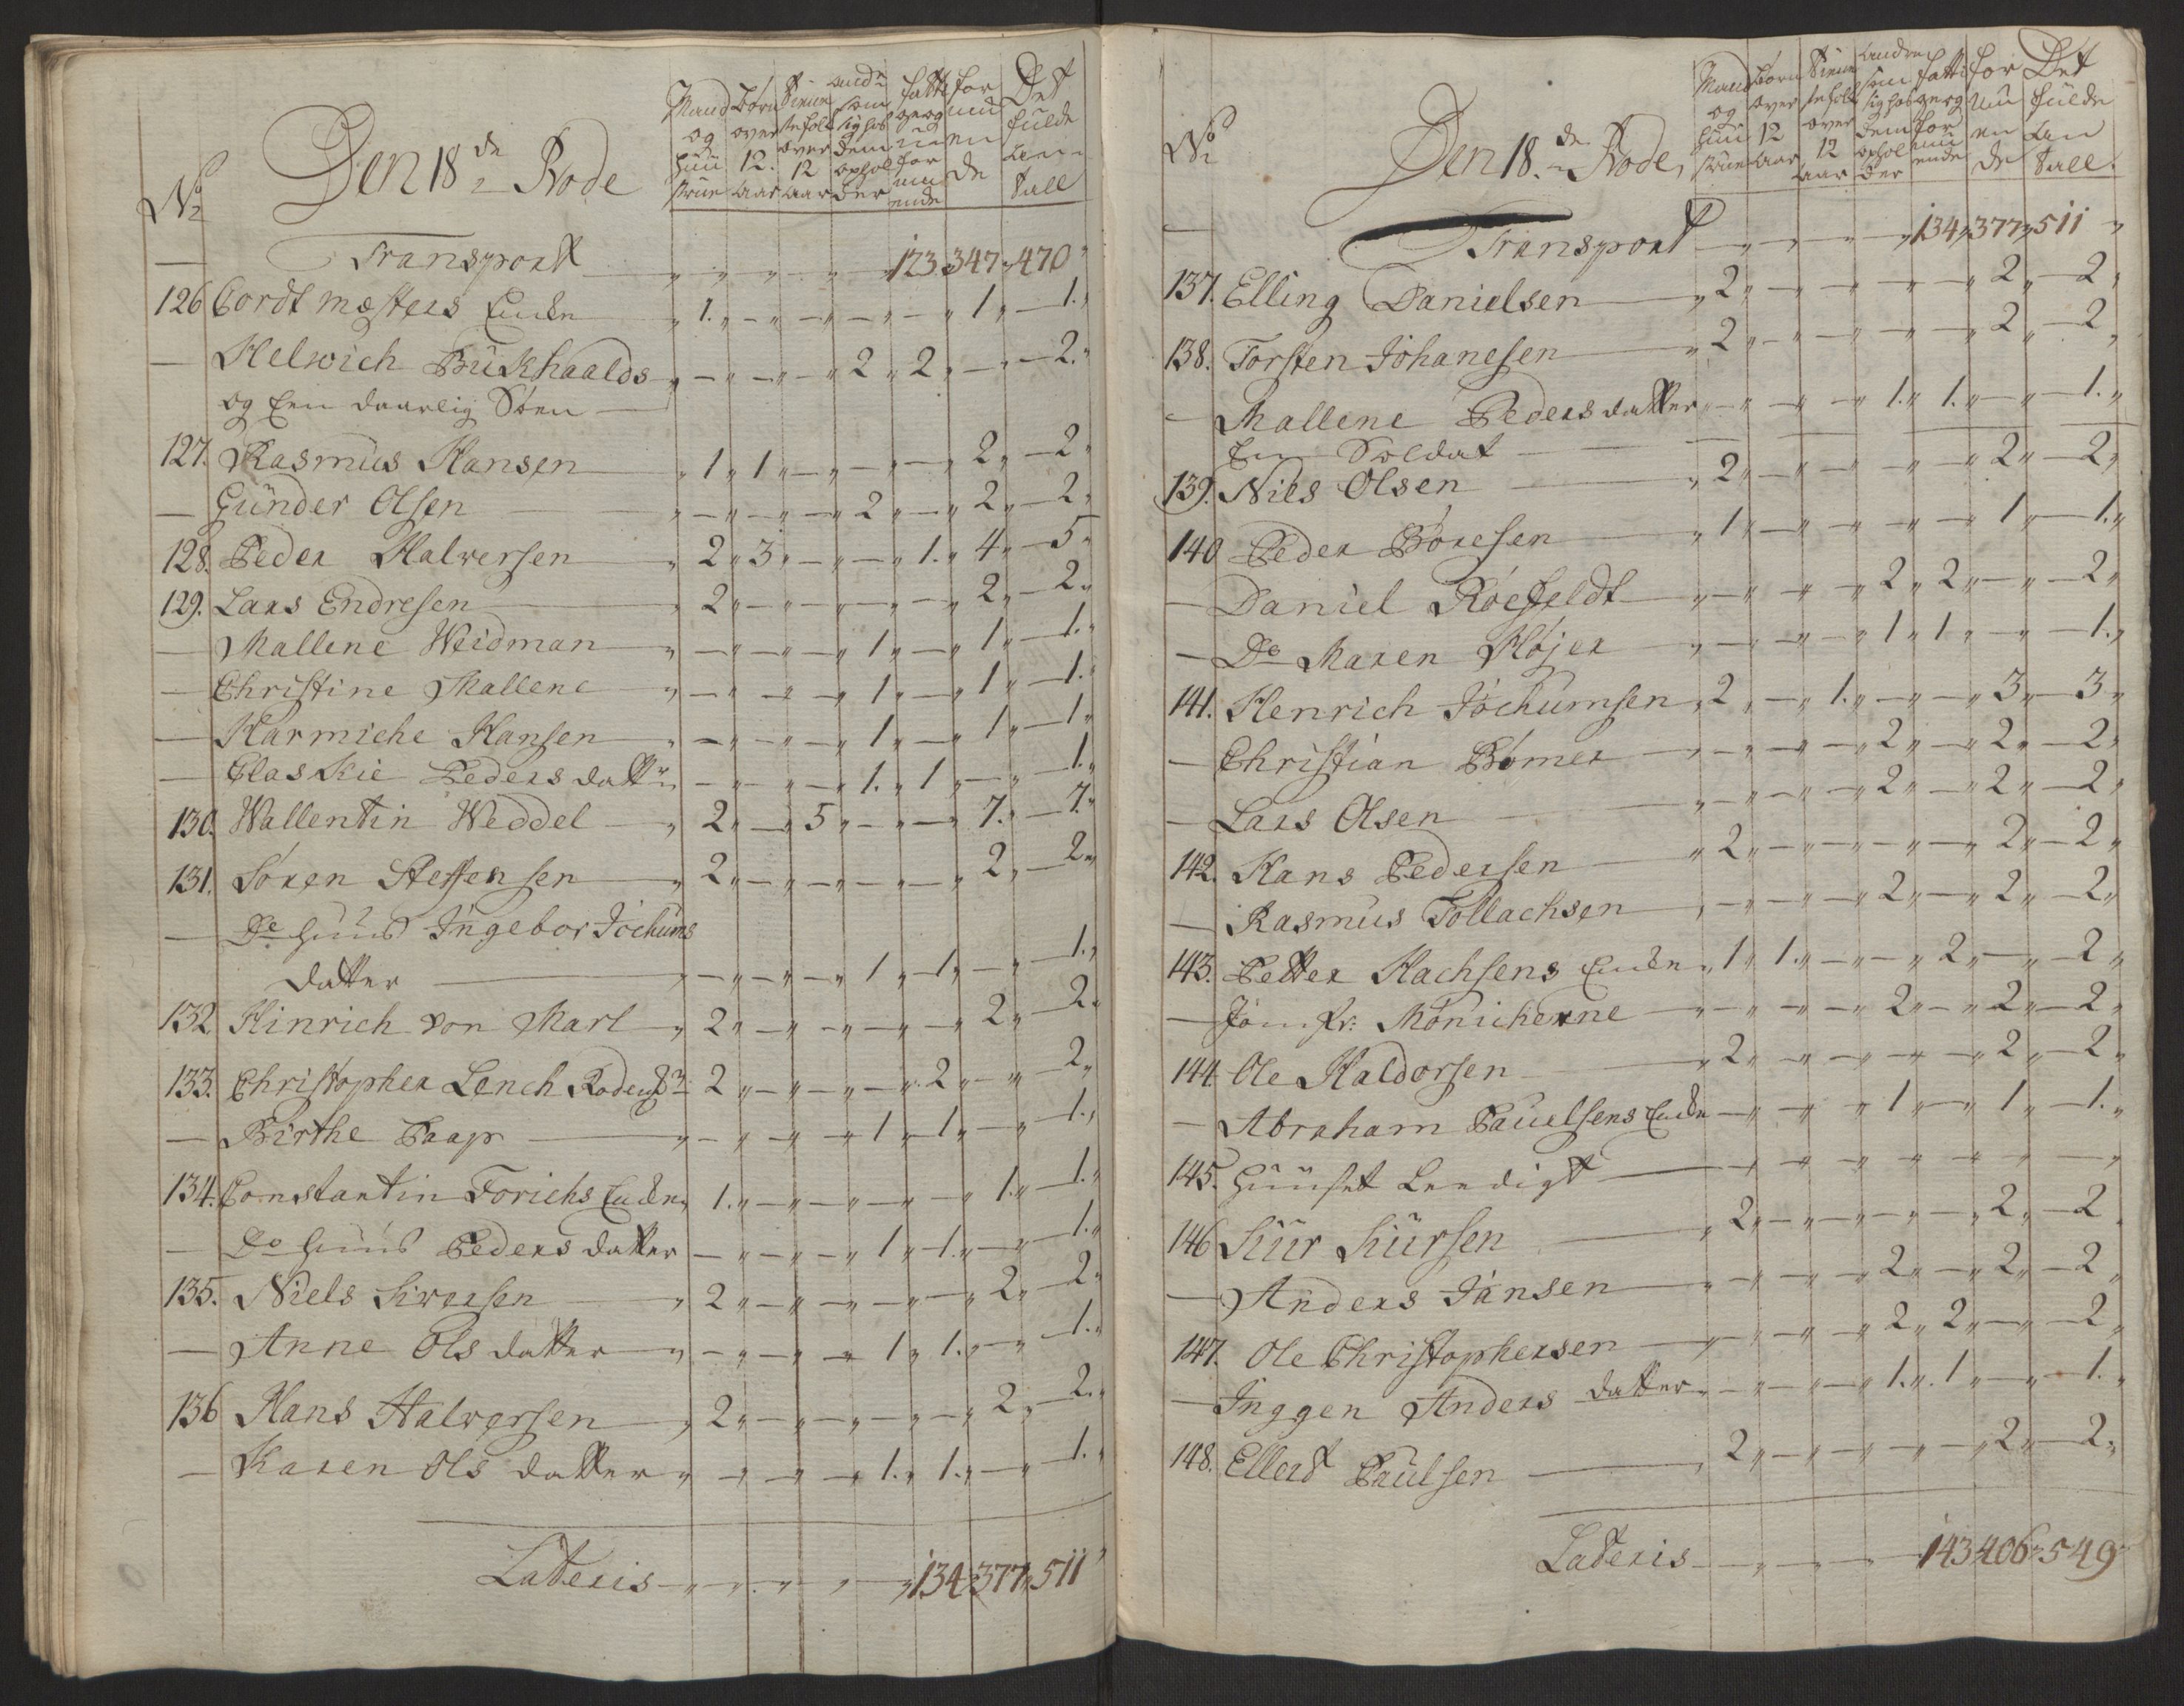 No Den 18de Rode Mand og Huustrue Børn over 12. Aar Tienestefolk over 12 Aar andre som sig hos dem opholder fattige og uformuende formuende Det fulde antall
— Transport " " " " 123 " 347 " 470 "
126 Cordt Mesters Enke 1. 1 1.
— Helwich Bukhaalds 2 2 2.
og Een daarlig Søen
127. Rasmus Hansen 1 1 2 2
— Günder Olsen 2 2 2
128. Peder Halversen 2 3 1. 4 5
129. Lars Endresen 2 2 2
— Mallene Weidman 1 1 1.
— Christine Mallene 1 1 1.
— Harmiche Hansen 1 1 1
— Claskie Pedersdatter 1. 1 1.
130. Wallentin Weddel 2 5 7. 7.
131. Sören Steffensen 2 2 2
— Do Huus Ingebor Jochums
datter 1 1 1.
132. Hinrich von Marl 2 2 2.
133. Christopher Lench Rodem: 2 2 2
— Birthe Paap 1 1 1.
134. Constantin Forichs Enke 1. 1. 1.
— Do Huus Peders datter 1 1. 1.
135. Niels Siversen 2 2 2
— Anne Ols datter 1 1. 1.
136 Hans Halversen 2 2 2.
— Karen Ols datter 1. 1. 1.
Lateris 134 " 377 " 511
No Den 18.de Rode, Mand og Huustrue Børn over 12 Aar Tienestefolk over 12 Aar andre som sig hos dem opholder fattige og uformuende formuende Det fulde antall.
— Transport 134 " 377 " 511 "
137. Elling Danielsen 2 2 2
138. Torsten Johanesen 2 2 2
— Mallene Peders datter 1. 1. 1.
En Soldat
139. Niels Olsen 2 2 2
140 Peder Böresen 1 1 1.
— Daniel Röefeldt 2 2 2
— Do Maren Höjer 1 1 1.
141. Henrich Jochumsen 2 1. 3 3
— Christian Bömer 2 2 2
— Lars Olsen 2 2 2
142. Hans Pedersen 2 2 2
— Rasmus Tollachsen 2 2 2
143. Petter Hachsens Enke 1 1. 2 2
— Jomfr: Mönickerne 2 2 2
144. Ole Haldorsen 2 2 2
— Abraham Pauelsens Enke 1 1 1.
145. Huuset Leedigt
146 Siur Siursen 2 2 2
— Anders Jansen 2 2 2
147. Ole Christophersen 2 2 2
— Inggen Anders datter 1. 1 1.
148. Ellert Paulsen 2 2 2
Lateris 143 406 " 549